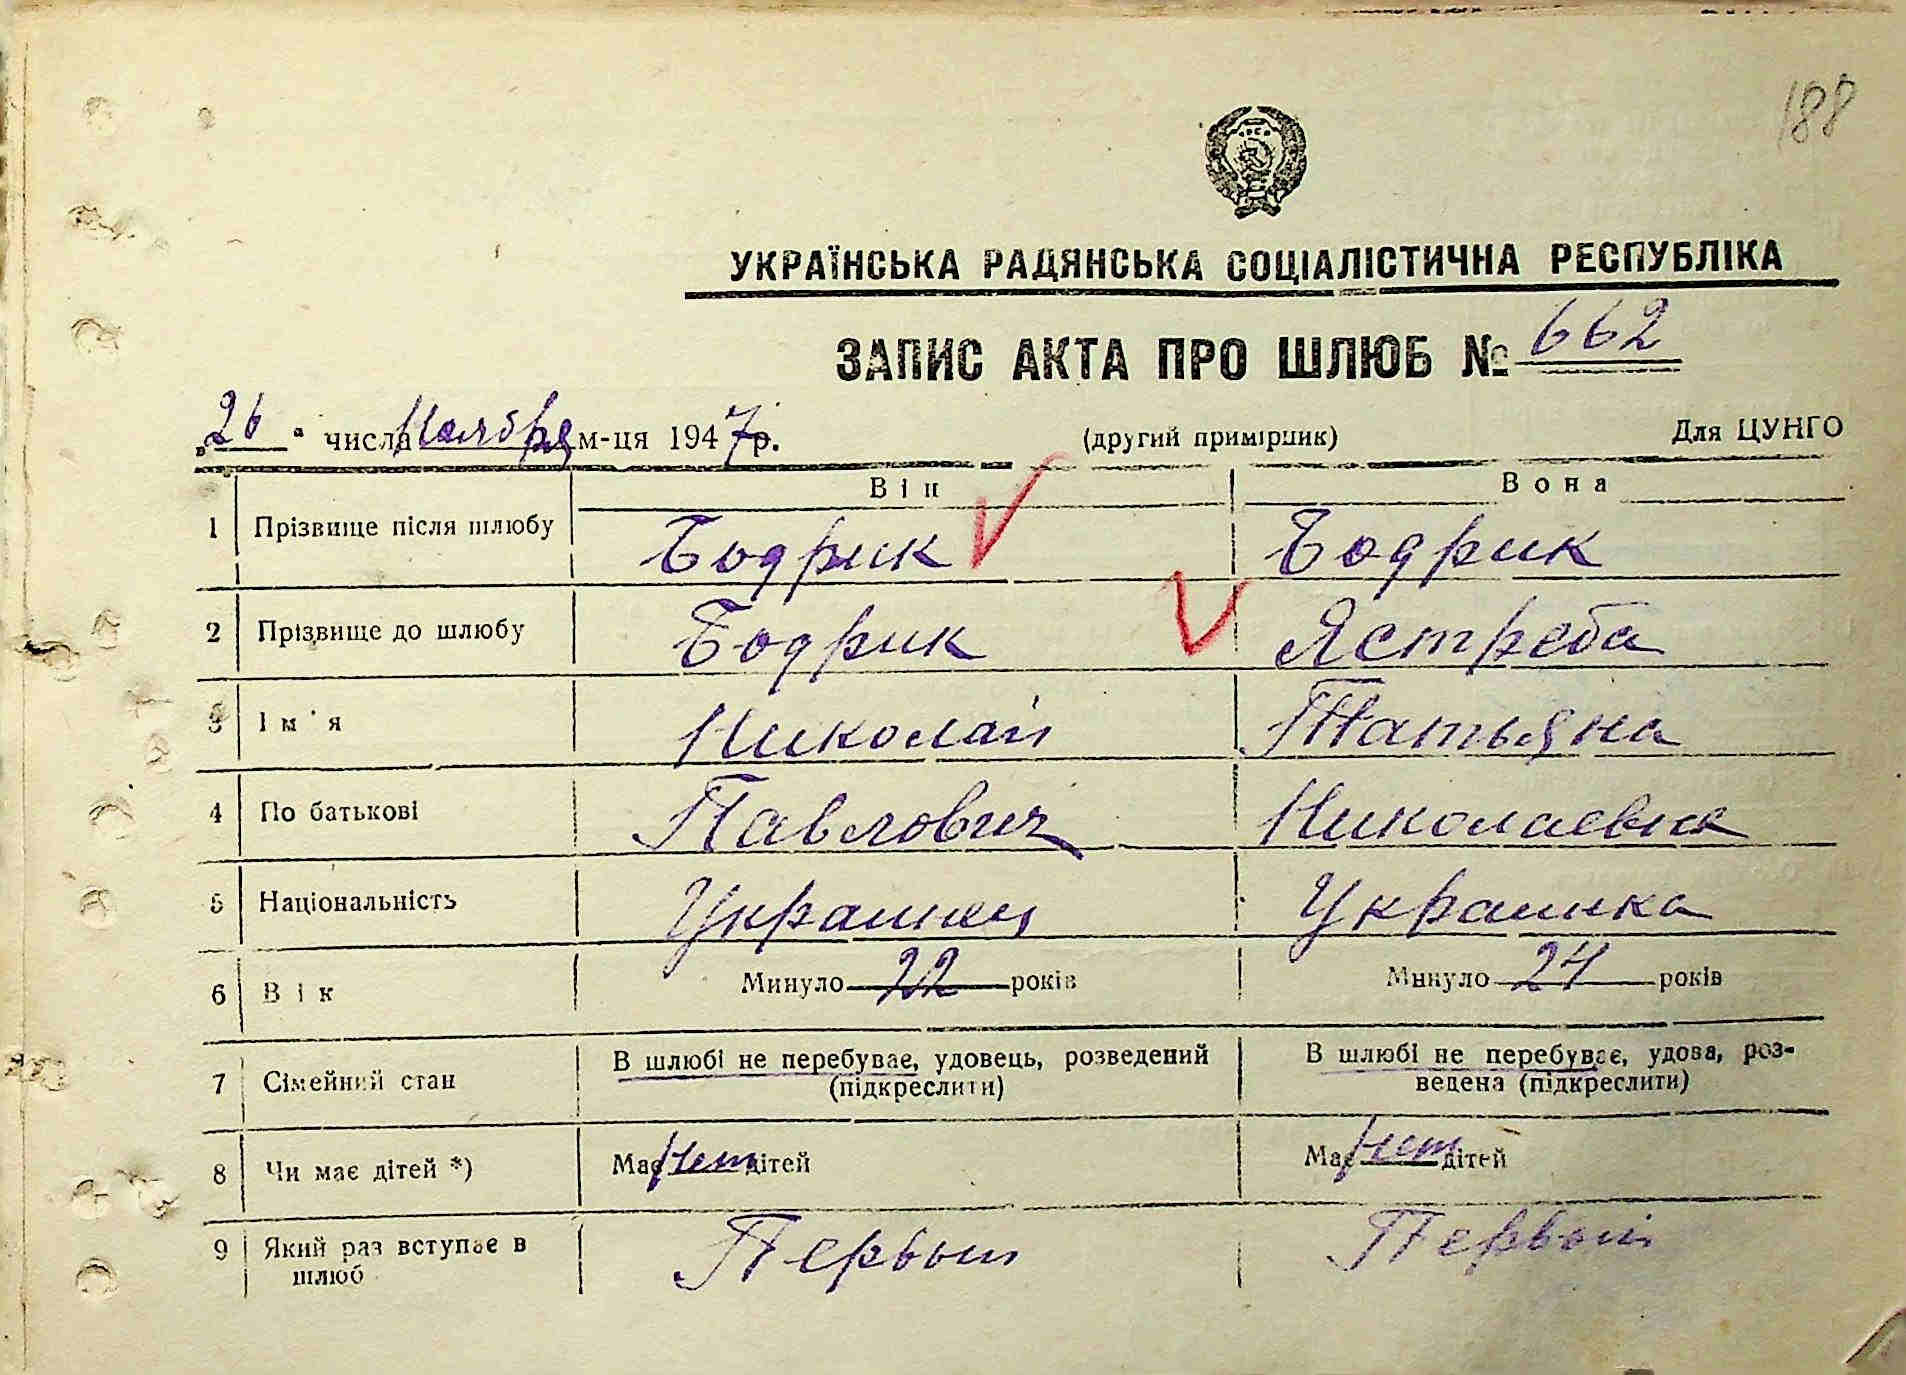 188
УКРАЇНСЬКА РАДЯНСЬКА СОЦІАЛІСТИЧНА РЕСПУБЛІКА
ЗАПИС АКТА ПРО ШЛЮБ № 662
„26“ числа Ноября м-ця 1947 р. (другий примірник) Для ЦУНГО
Він Вона
1 Прізвище після шлюбу Бодрик Бодрик
2 Прізвище до шлюбу Бодрик Ястреба
3 Ім'я Николай Татьяна
4 По батькові Павлович Николаевна
5 Національність Украинец Украинка
6 Вік Минуло 22 років Минуло 24 років
7 Сімейний стан В шлюбі не перебуває, удовець, розведений В шлюбі не перебуває, удова, роз-
(підкреслити) ведена (підкреслити)
8 Чи має дітей *) Має Нет дітей Має Нет дітей
9 Який раз вступає в Первый Первый
шлюб